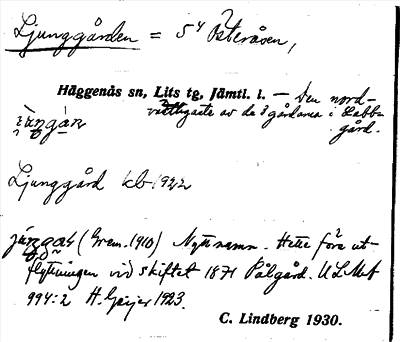 Ljunggården = 5⁴ Österåsen,
Häggenås sn, Lits tg, Jämtl. l. — Den nord-
västligaste av de 3 gårdarna i Labbe
gård.
Ljunggård kb 1922
(Grem. 1910) Nytt namn. Hette före ut-
flyttningen vid skiftet 1871 Pålgård. ULMA
994:2 H. Geijer 1923.
C. Lindberg 1930.